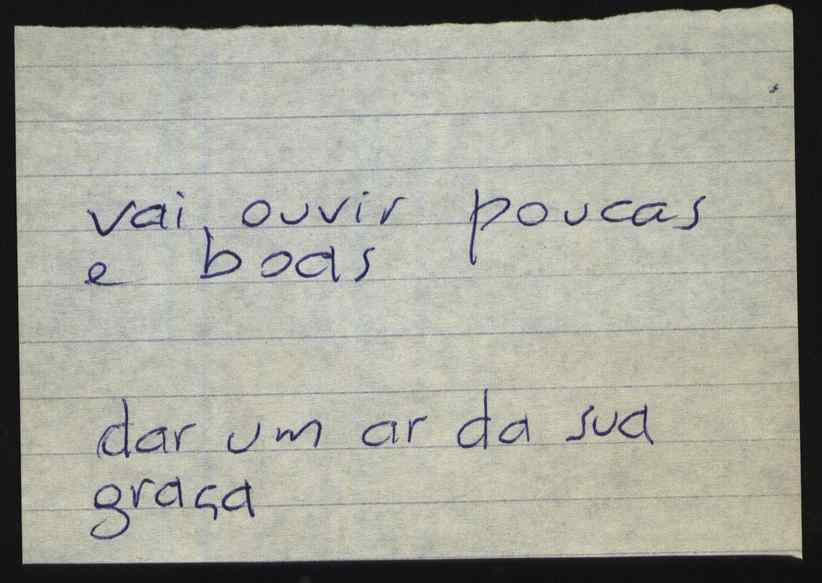 vai ouvir poucas
e boas
dar um ar da sua
graça